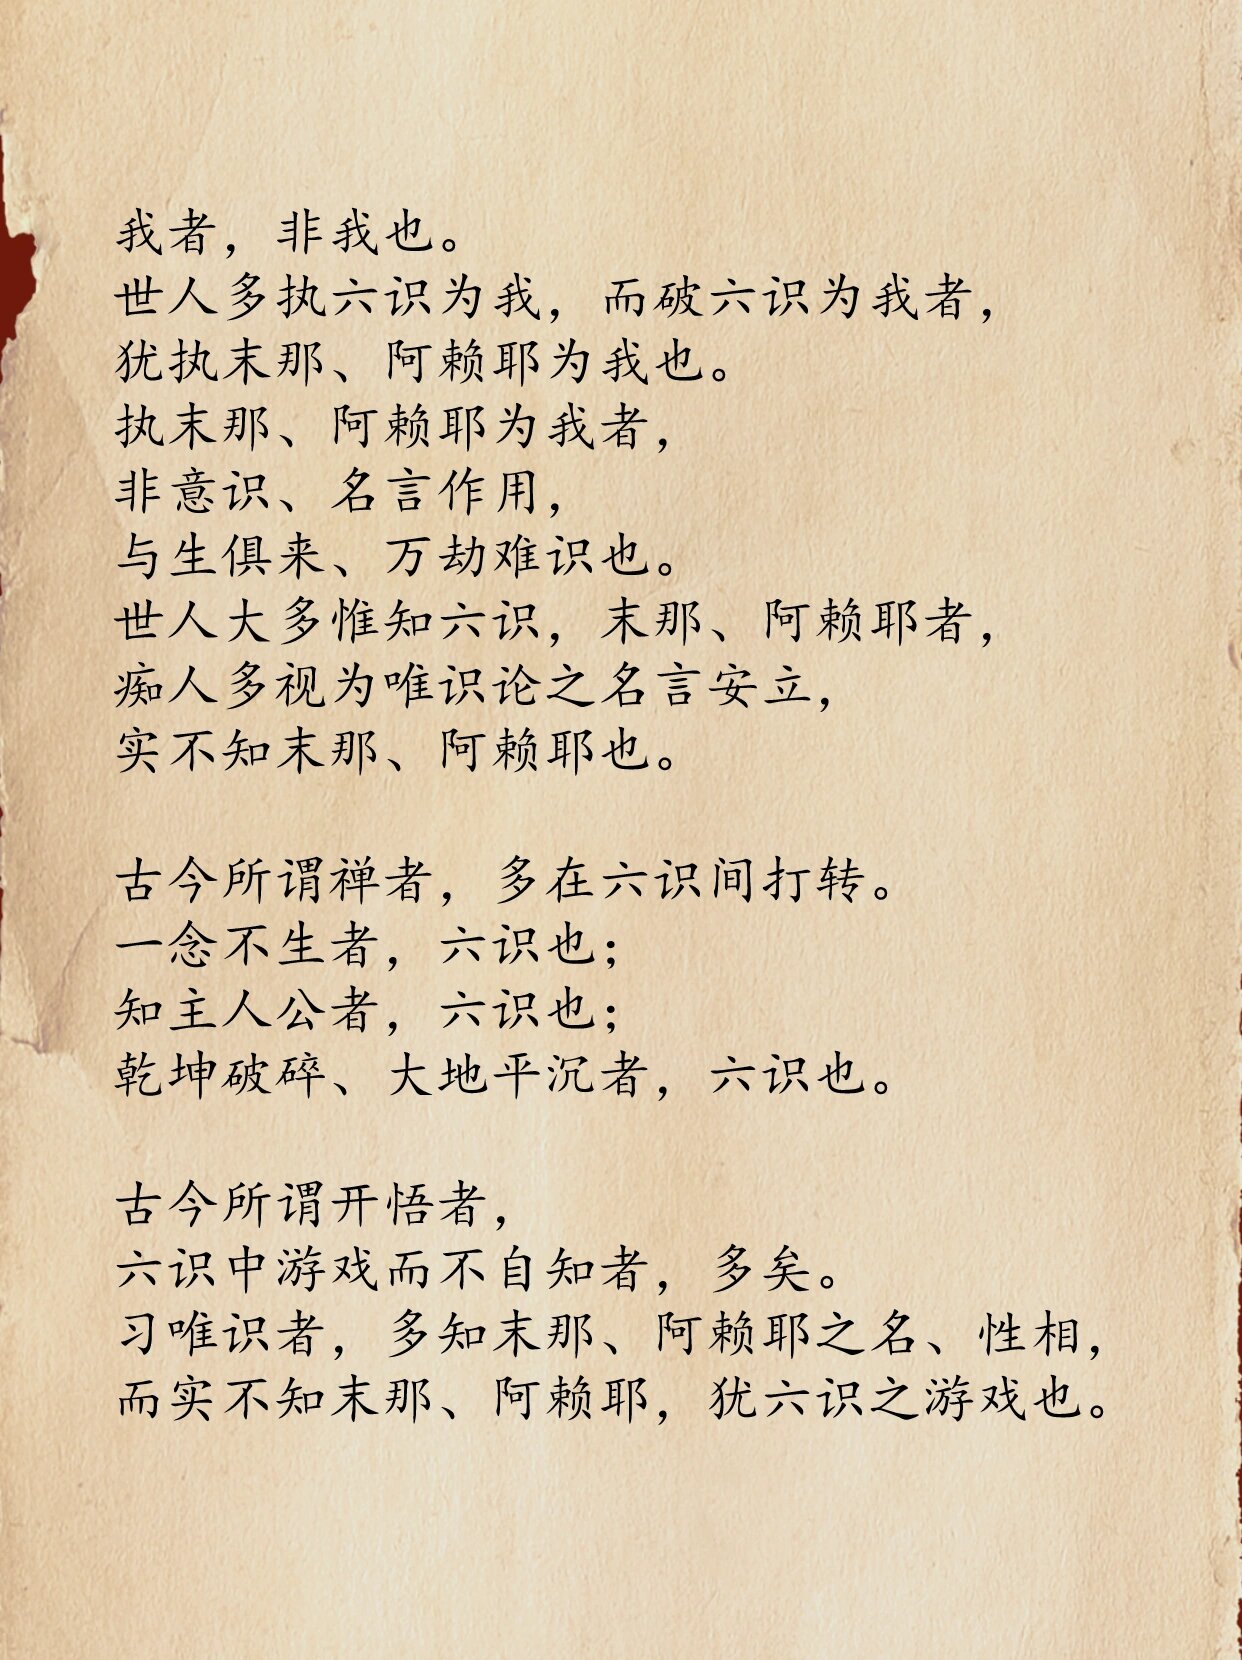 我者，非我也。
世人多执六识为我，而破六识为我者，
犹执末那、阿赖耶为我也。
执末那、阿赖耶为我者，
非意识、名言作用，
与生俱来、万劫难识也。
世人大多惟知六识，末那、阿赖耶者，
痴人多视为唯识论之名言安立，
实不知末那、阿赖耶也。
古今所谓禅者，多在六识间打转。
一念不生者，六识也；
知主人公者，六识也；
乾坤破碎、大地平沉者，六识也。
古今所谓开悟者，
六识中游戏而不自知者，多矣。
习唯识者，多知末那、阿赖耶之名、性相，
而实不知末那、阿赖耶，犹六识之游戏也。